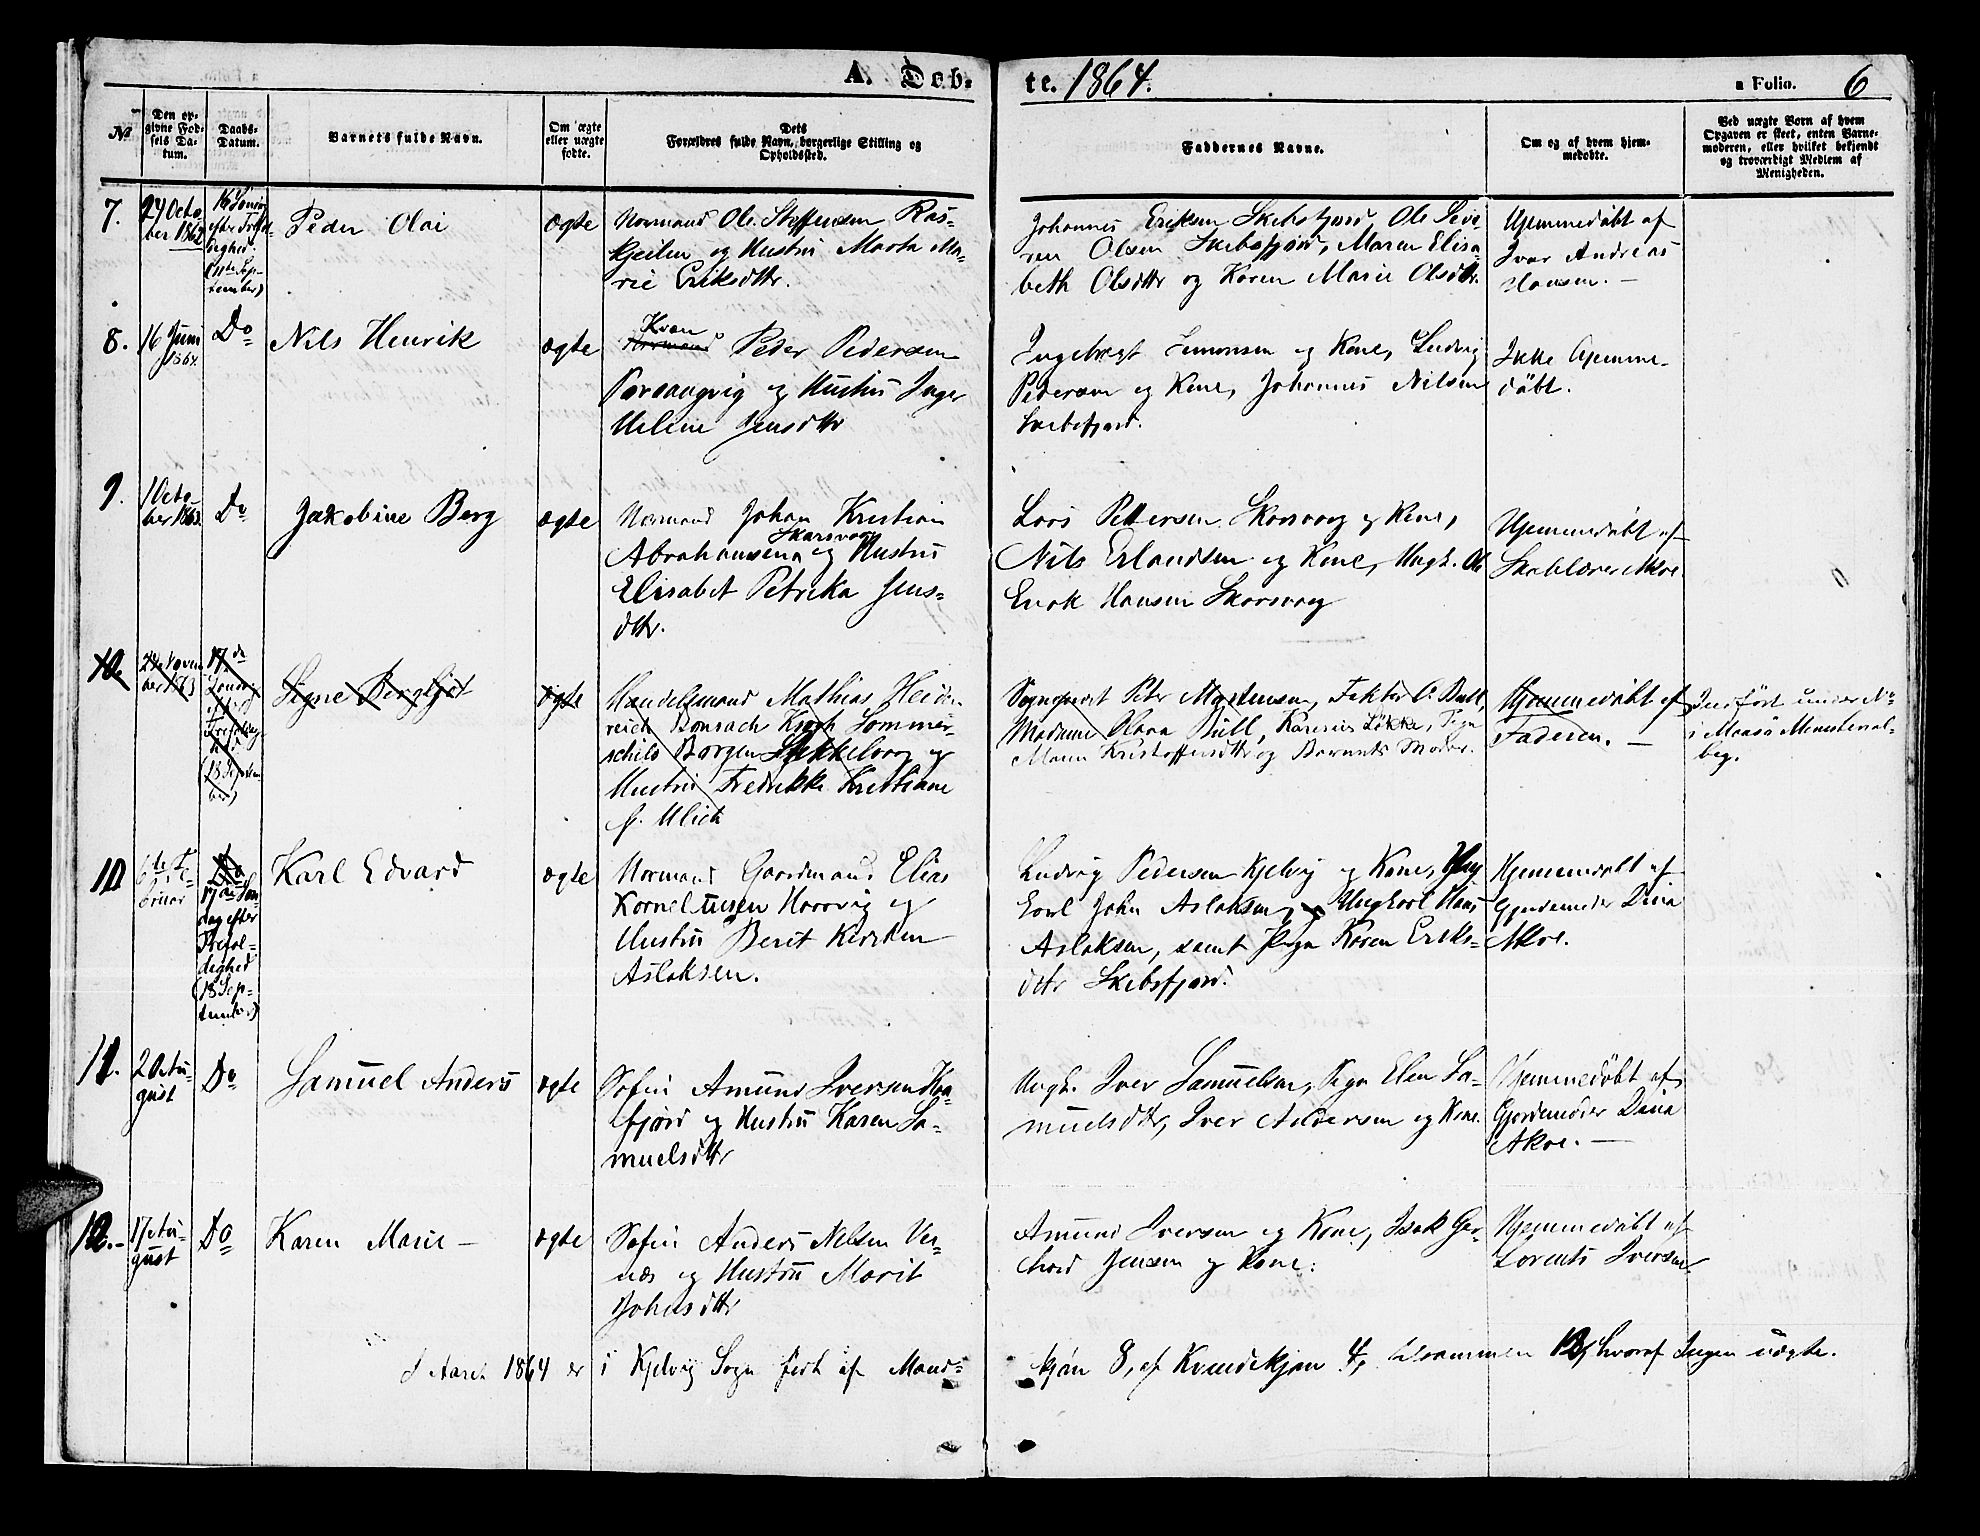 A. Døb-
te. 1864.
a Folio. 6
№
Den op-
givne Fød-
sels Da-
tum.
Daabs-
Datum.
Barnets fulde Navn.
Om ægte
eller uægte
fødte.
Dets
Forældres fulde Navn, borgerlige Stilling og
Opholdssted.
Faddernes Navne.
Om og af hvem hjem-
medøbte.
Ved uægte Børn af hvem
Opgaven er skeet, enten Barne-
moderen, eller hvilket bekjendt
og troværdigt Medlem af
Menigheden.
7.
24 Octo-
ber 1862
efter Trefol-
dighed.
(11te Sep-
tember)
Peder Olai
ægte
Normand Ole Steffensen Ris-
kjeilen og Hustru Marta Ma-
rie Eriksdttr.
Johannes Eriksen Skibsfjord Ole Seve-
ren Olsen Skibsfjord, Maren Elisa-
beth Olsdttr og Karen Marie Olsdttr.
Hjemmedøbt af
Ivar Andreas
Hansen. –
8.
16 Juni
1864.
Do
Nils Henrik
ægte
Kvæn
Normand Peder Pedersen
Porsangvig og Hustru Inger
Helene Jensdttr
Ingebrigt Simonsen og Kone, Ludvig
Pedersen og Kone, Johannes Nilsen
Skibsfjord.
Ikke hjemme-
døbt.
9.
1 Octo-
ber 1863.
Do
Jakobine Berg
ægte
Normand Johan Kristian
Skarsvaag
Abrahamsen og Hustru
Elisabet Petrika Jens-
dttr.
Lars Pettersen Skarsvaag og Kone,
Nils Erlandsen og Kone, Ungk. Ole
Enok Hansen Skarsvaag
Hjemmedøbt af
Skolelærer Akve
10
Novem
ber 1863
17de
Søndag
efter
Trefoldig-
hed
(18 Septem
ber)
Signe Bergljot
ægte
Handelsmand Mathias Heide-
reich Bonsach Krogh Sommer-
schild Borgen Sakkelvaag og
Hustru Fredrikke Kristiane
f. Ulich
Sogneprest Peter Mortensen, Faktor C. Bull,
Madame Olava Bull, Karenius Løkke, Pige
Maren Kristoffersdttr og Barnets Moder.
Hjemmedøbt af
Faderen. –
Indført under №
i Maasø Ministerial-
bog.
10
6te Fe-
bruar
Do
17de Søn-
dag efter
Trefol-
dighed
(18 Sep-
tember)
Karl Edvard
ægte
Normand Gaardmand Elias
Korneliusen Honvig og
Hustru Berit Kirsten
Aslaksen.
Ludvig Pedersen Kjelvig og Kone, Ung
Earl John Aslaksen, Ungkarl Hans
Aslaksen, samt Pige Karen Eriks-
dttr Skibsfjord.
Hjemmedøbt af
Gjordemoder Dina
Akve.
11.
20 Au-
gust
Do
Samuel Anders
ægte
Søfin Amund Iversen Ko-
fjord og Hustru Karen Sa-
muelsdttr
Ungk. Iver Samuelsen, Pige Elen Sa-
muelsdttr, Iver Andersen og Kone.
Hjemmedøbt af
Gjordemoder Dina
Akve. –
12.-
17 Au-
gust
Do
Karen Marie –
ægte
Søfin Anders Nilsen Ver-
nes og Hustru Marit
Johnsdttr
Amund Iversen og Kone, Isak Ger-
hard Jensen og Kone.
Hjemmedøbt af
Lorents Iversen.
I Aaret 1864 er i Kjelvig Sogn født af Mand-
kjøn 8, af Kvindekjøn 4, tilsammen 12, hvoraf Ingen uægte.